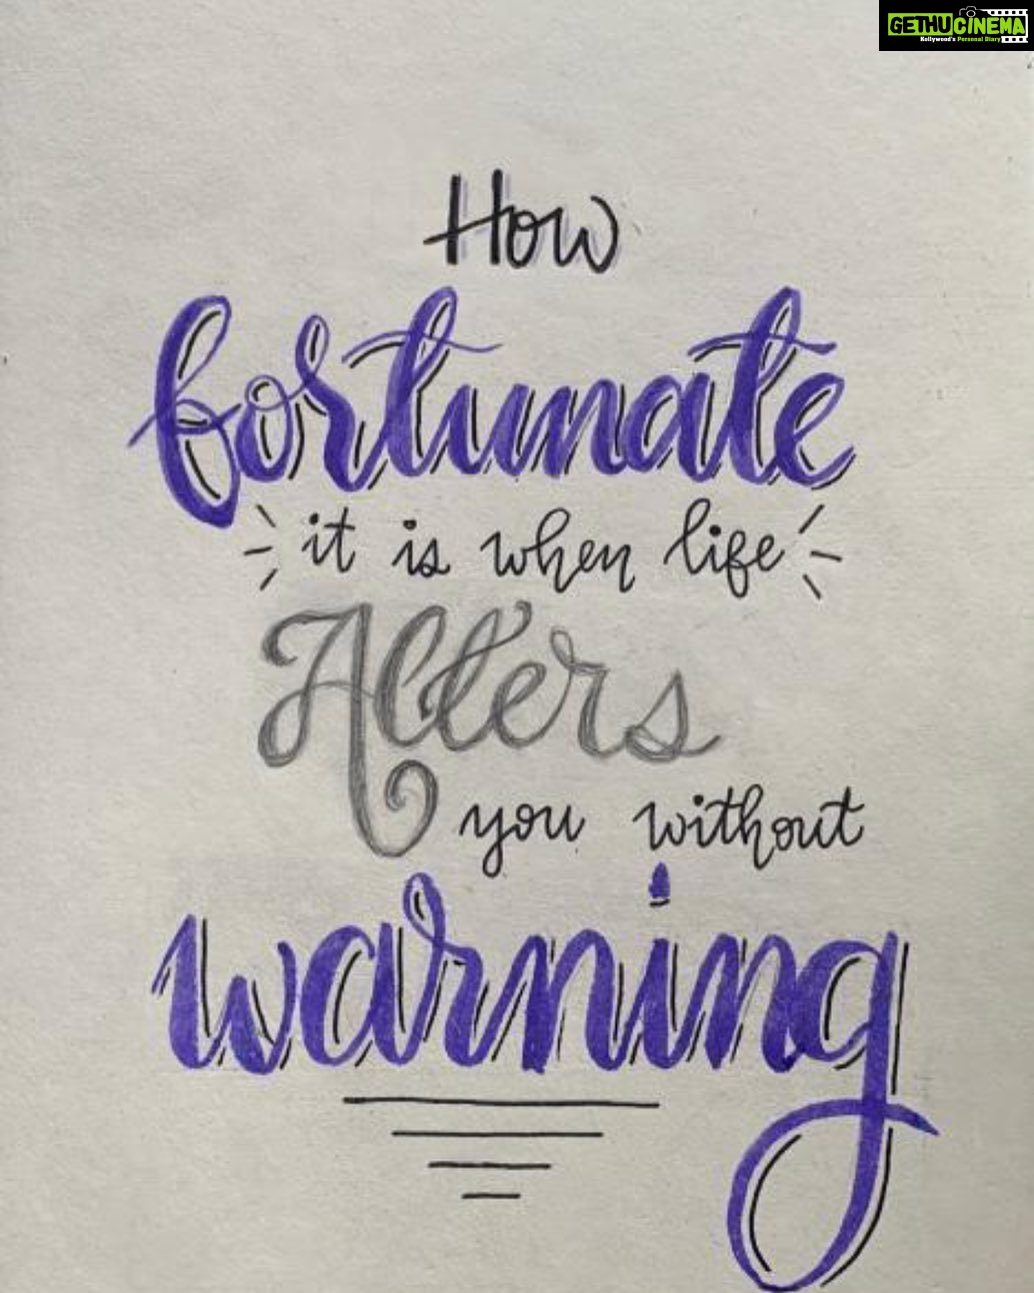 GETHUCINEMA
Kollywood's Personal Diary
How
fortunate
it is when life
Alters
you without
warning